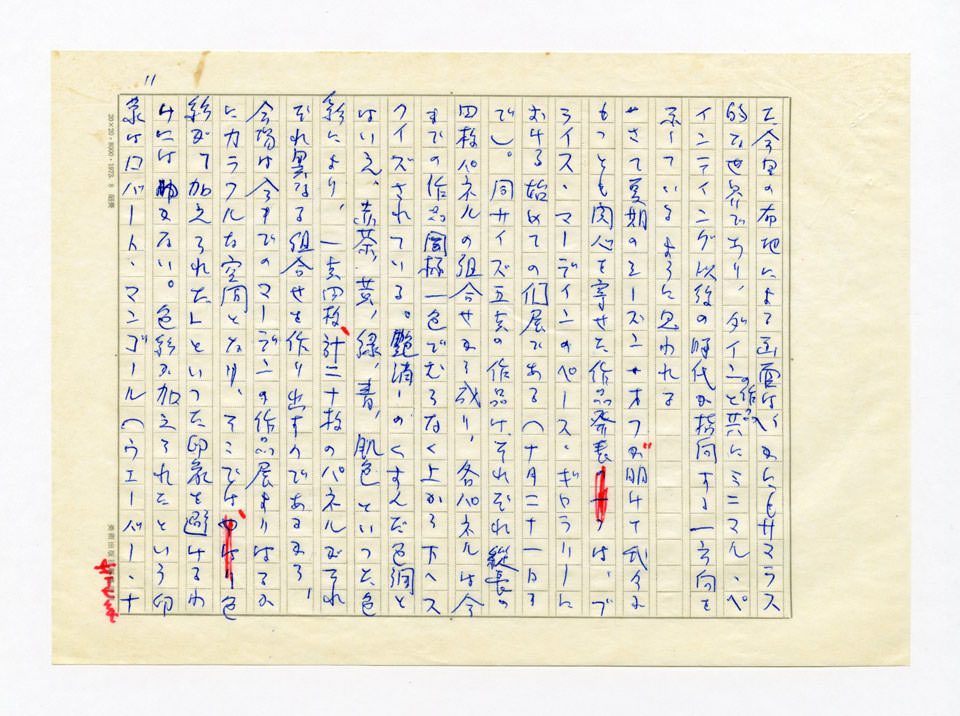 11
た全里の布地による画面はいかにもサマラス
的な世界であり、ダインの作品と共にミニマル・ペ
インティング以後の時代が指向する一方向を
示しているように思われる
さて夏期のシーズン・オフが明けて我々が
もっとも関心を寄せた作品発表の一つは、ブ
ライス・マーディンのペース・ギャラリーに
おける始めての個展である(十月二十一日ま
で)。同サイズ五点の作品は、それぞれ縦長の
四枚パネルの組合せから成り、各パネルは今
までの作品同極一色でむらなく上から下へス
クイズされている。艶消しのくすんだ色調と
はいえ、赤茶、黄、緑、青、肌色といった色
彩により、一点四枚、計二十枚のパネルがそれ
ぞれ異なる組合せを作り出すのであるから、
今場は今までのマーデンの作品展よりはるか
にカラフルな空間となり、そこでは、やはり色
彩がて加えられた」といった印象を避けるわ
けには行かない。色彩が加えられたという印
象はロバート・マンゴールド(ウェーバー・ナ
20×20・8000・1973. 8